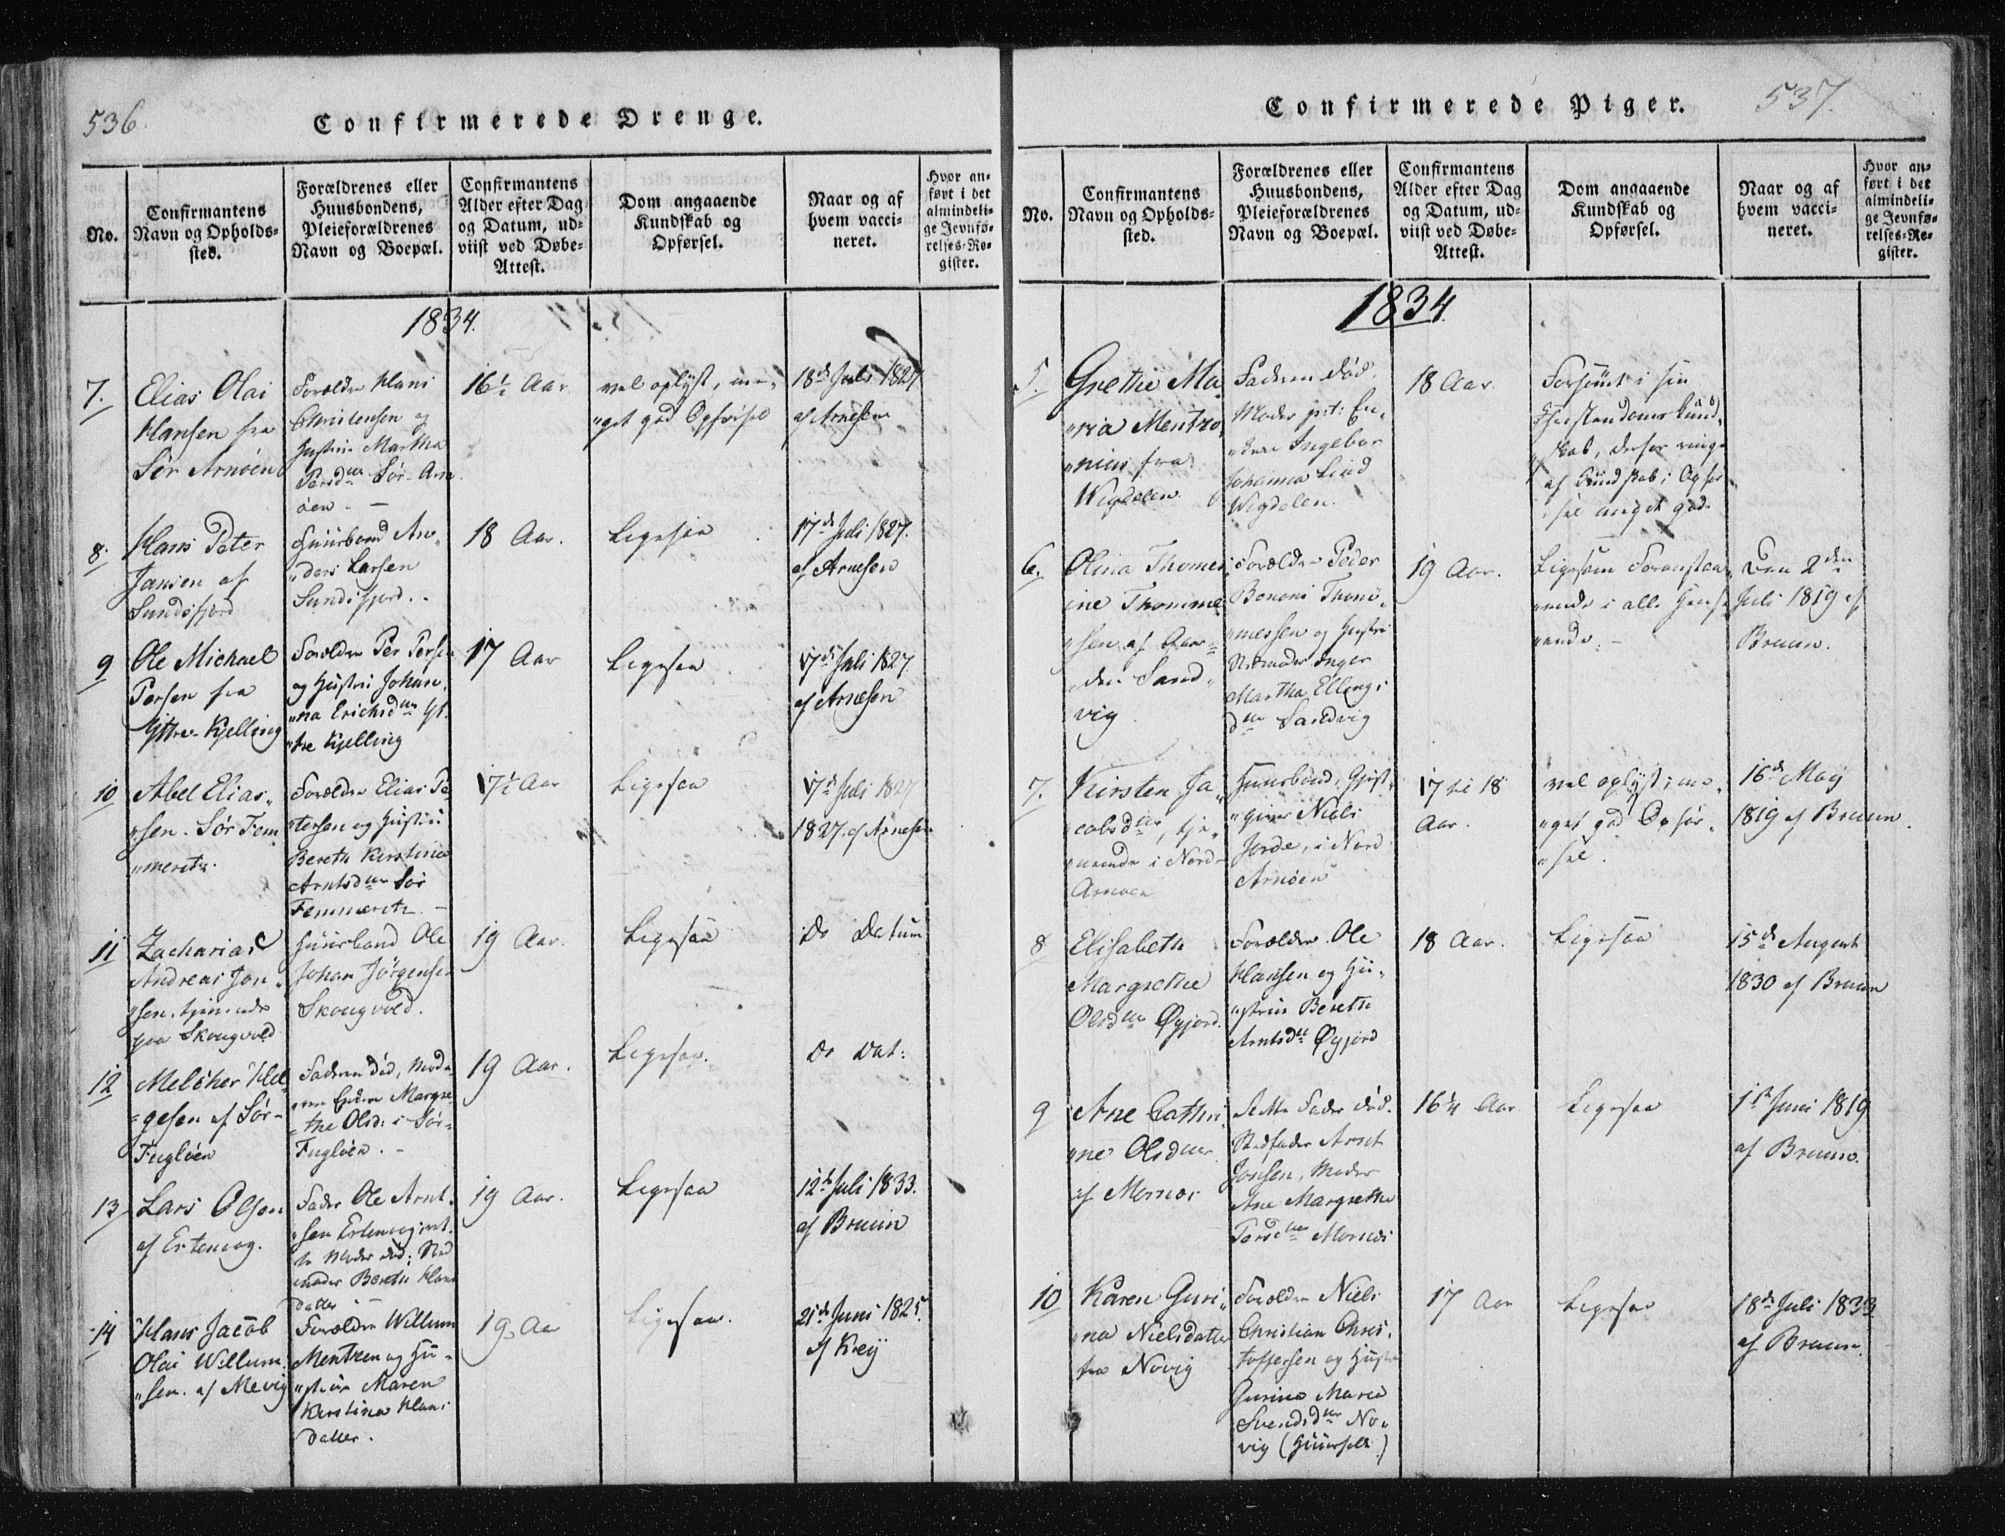 536.
Confirmerede Drenge.
No.
Confirmantens
Navn og Opholds-
sted.
Forældrenes eller
Huusbondens,
Pleieforældrenes
Navn og Boepæl.
Confirmantens
Alder efter Dag
og Datum, ud-
viist ved Døbe-
Attest.
Dom angaaende
Kundskab og
Opførsel.
Naar og af
hvem vacci-
neret.
Hvor an-
ført i det
almindeli-
ge Jevnfø-
relses-Re-
gister.
1834.
7.
Elias Olai
Hansen fra
Sør Arnøen
Forældre Hans
Christensen og
Hustrue Martha
Persdtr Sør-Arn
øen -
16½ Aar
vel oplyst, me-
"get god Opførsel
18de Juli 1827
af Arnesen
8.
Hans Peter
Jansen af
Sundsfjord
Huusbond An-
"ders Larsen
Sundsfjord.
18 Aar.
Ligesaa
17de Juli 1827.
af Arnesen
9
Ole Michael
Persen fra
Yttre-Kjelling
Forældre Per Persen
og Hustrue Johan-
"na Erichsdtr Yt-
"tre Kjelling
17 Aar
Ligesaa
17de Juli 1827
af Arnesen
10
Abel Elias-
"sen. Sør Fem
"meretz.
Forældre Elias Pe-
"tersen og Hustrue
Bereth Kirstina
Arntsdtr Sør
Femmeretz. -
17½ Aar
Ligesaa
17de Juli 1827
1827 af Arnesen
11
Zacharias
Andreas Jon-
"sen, tjenende
paa Skougvold
Huusbond Ole
Johan Jørgensen
Skougvold.
19 Aar.
Ligesaa
Do Datum
12
Melcher Hel-
"gesen af Sør-
Fugløen
Faderen død, Mode-
"ren Enken Margre-
"the Olsd: i Sør-
Fugløen. -
19 Aar.
Ligesaa.
Do Dat:
13
Lars Olsen
af Ertenvog.
Fader Ole Arnt-
"sen Ertenvog,
Moder død; Sted
moder Bereth Hans
datter -
19 Aar.
Ligesaa
12te Juli 1833.
af Bruun
14
Hans Jacob
Olai Willum-
"sen. af Mevig
Forældre Willum
Mentzen og Hu-
"strue Maren
Kirstina Hans
datter.
19 Aar
Ligesaa.
21de Juni 1825.
af Kreÿ
Confirmerede Piger.
537.
No.
Confirmantens
Navn og Opholds-
sted.
Forældrenes eller
Huusbondens,
Pleieforældrenes
Navn og Boepæl.
Confirmantens
Alder efter Dag
og Datum, ud-
viist ved Døbe-
Attest.
Dom angaaende
Kundskab og
Opførsel.
Naar og af
hvem vacci-
neret.
Hvor an-
ført i det
almindeli-
ge Jevnfø-
relses-Re-
gister.
1834.
5.
Grethe Ma-
"ria Mentzo-
"nius fra
Wigdelen.
Faderen død.
Moder p:t: En-
"ken Ingebor
Johanna Lind
Wigdelen.
18 Aar.
Forsømt i sin
Christendoms Kund-
"skab, derfor ringe
af Kundskab; Opfør
"sel meget god.
6.
Olina Thomes
ine Thomme-
"sen af
Sand-
vig.
Forældre Peder
Benoni Thom-
"messen og Hustru
Stedmoder Inger
Martha Ellings
dtr Sandvig
19 Aar.
Ligesom Foranstaa-
"ende i alle Hense-
"ende. -
Den 2den
Juli 1819 af
Bruun.
7.
Kirsten Ja-
"cobsdtr, tje-
"nende i Nord-
Arnøen
Huusbond, Gjest-
"giver Niels
Jorde, i Nord
Arnøen
17 til 18
Aar.
vel oplyst; me-
"get god Opfør-
"sel.
16de May
1819 af Bruun.
8
Elisabeth
Margrethe
Olsdtr Øyjord.
Forældre Ole
Hansen og Hu-
"strue Bereth
Arntsdtr Øyjord
18 Aar.
Ligesaa
15de August
1830 af Bruun
9
Ane Cathri-
"ne Olsdtr
af Mornæs
Rette Fader død.
Stedfader Arnt
Jonsen, Moder
Ane Margrethe
Persdtr Mornæs
16¼ Aar
Ligesaa
1ste Juni 1819
af Bruun.
10
Karen Guri-
"na Nielsdatter
fra Novig
Forældre Niels
Christian Chris-
toffersen og Hustrue
Gurina Maria
Svendsdtr No-
vig (Huusfolk)
17 Aar
Ligesaa
18de Juli 1833
af Bruun.